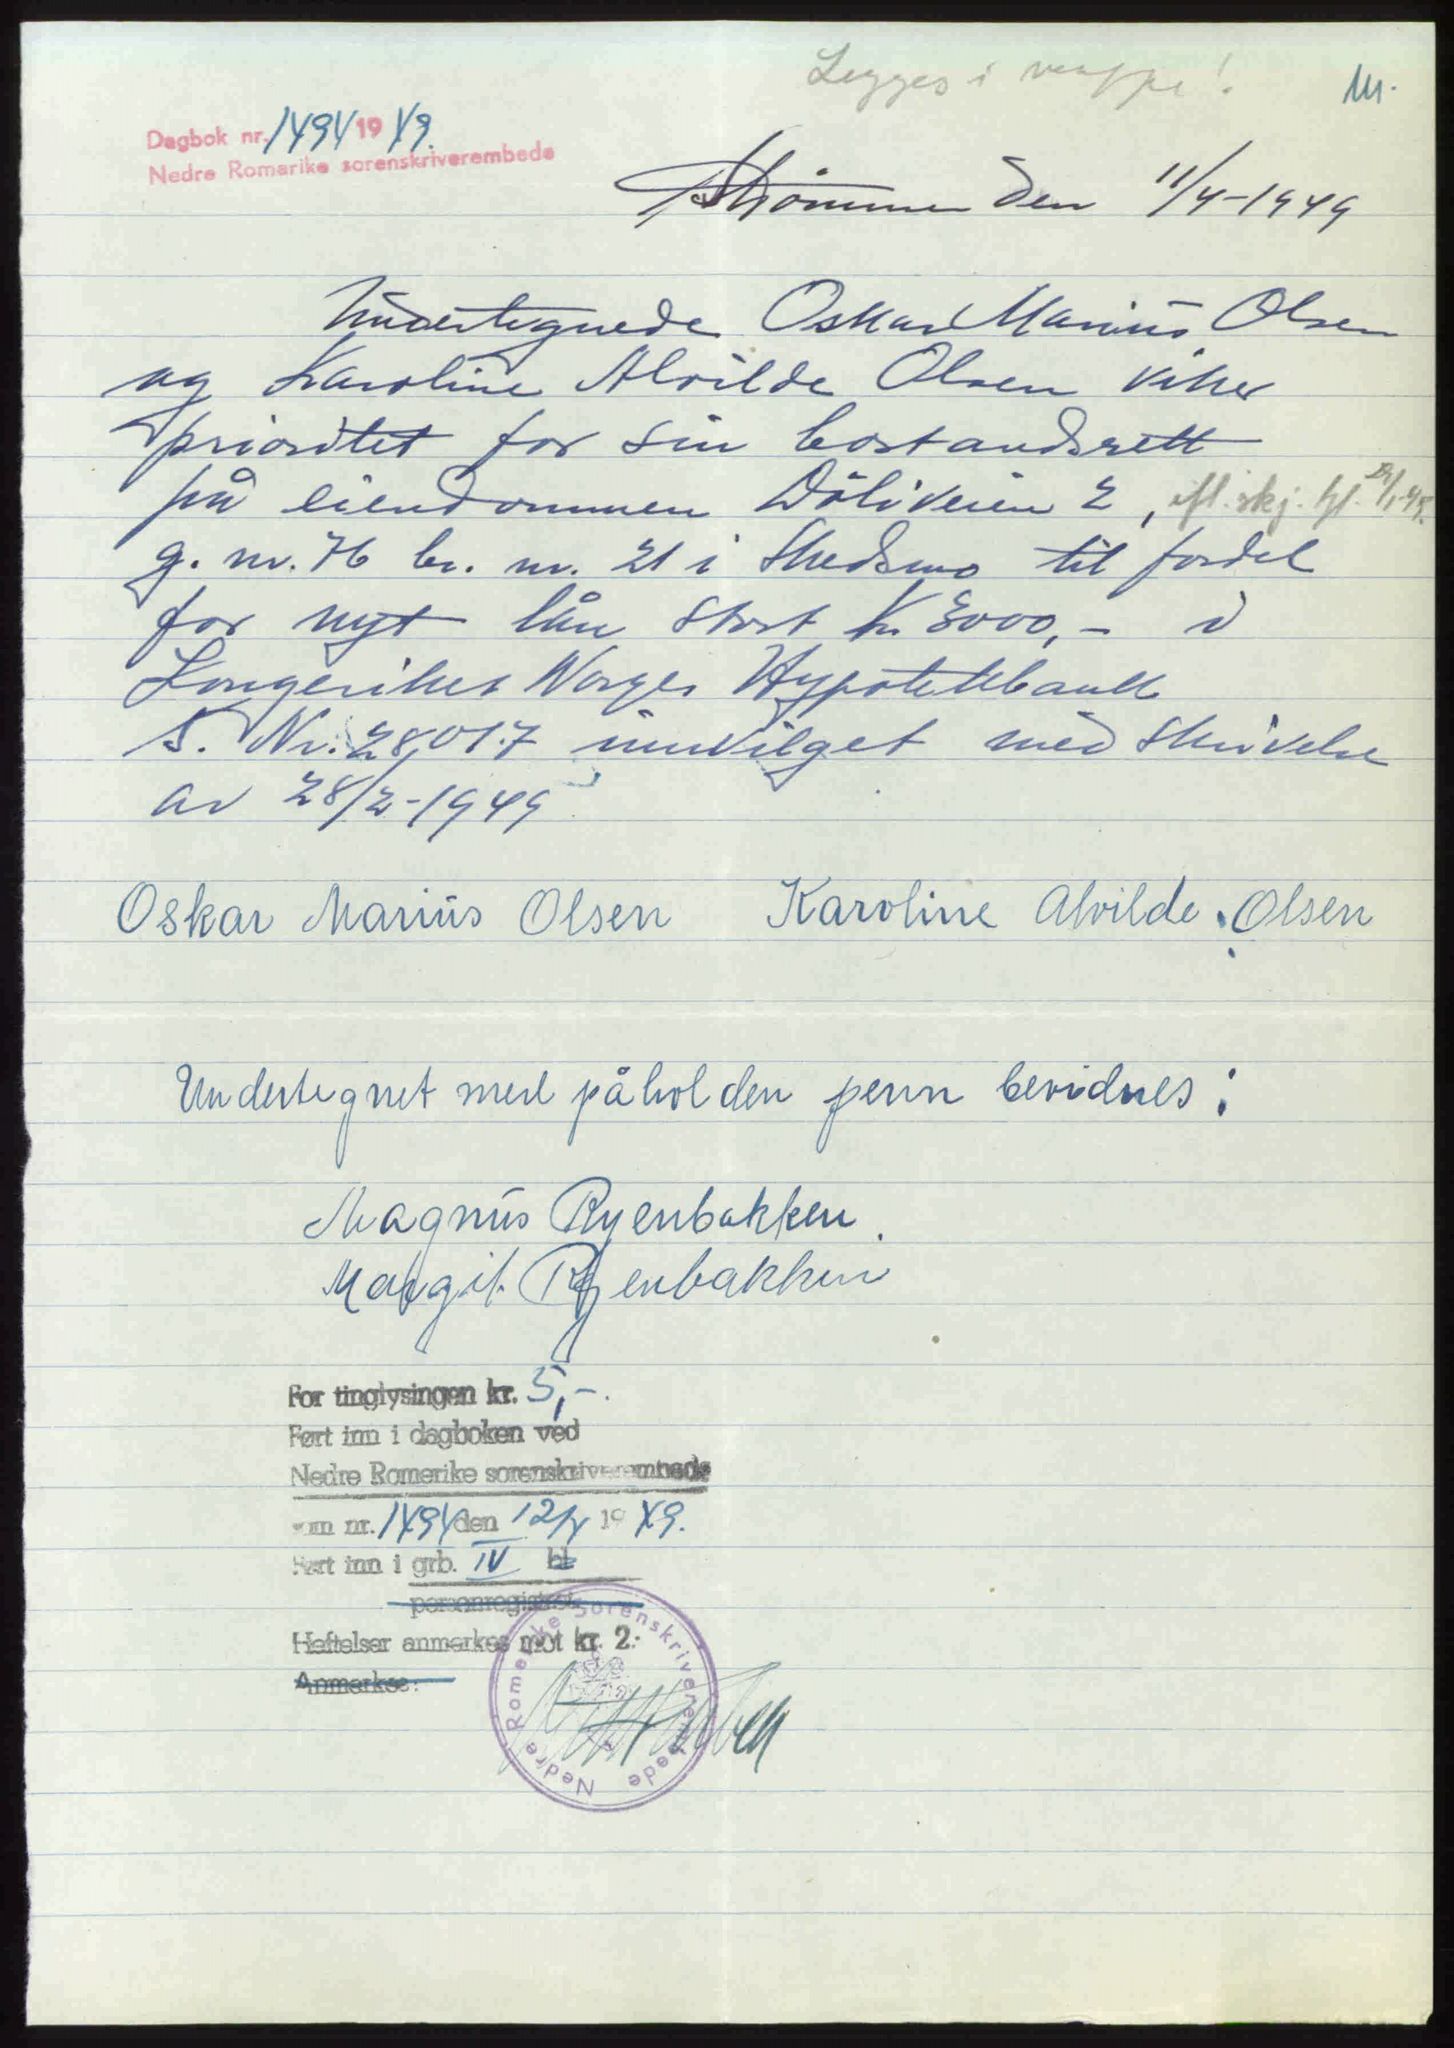 Legges i mappe!
Dagbok nr. 1494 1949.
Nedre Romerike sorenskriverembede
Strømmen den 11/4-1949
Undertegnede Oskar Marius Olsen
og Karoline Alvilde Olsen viker
prioritet for sin bostandsrett
på eiendommen Döliveien 2, ifl. skj. tgl.
g. nr. 76 br. nr. 21 i Skedsmo til fordel
for nyt lån stort kr 3000,- i
Kongeriket Norges Hypotekbank
S. Nr. 28017 innvilget med skrivelse
av 28/2-1949
Oskar Marius Olsen Karoline Alvilde Olsen
Undertegnet med påholden penn bevidnes:
Magnus Ryenbakken.
Margit Ryenbakken
For tinglysingen kr. 5,-.
Ført inn i dagboken ved
Nedre Romerike sorenskriverembede
som nr. 1494 den 12/4 1949.
Ført inn i grb. IV bl
personregistret
Heftelser anmerkes mot kr. 2:-
Anmerkes:
Nedre Romerike Sorenskriverembede